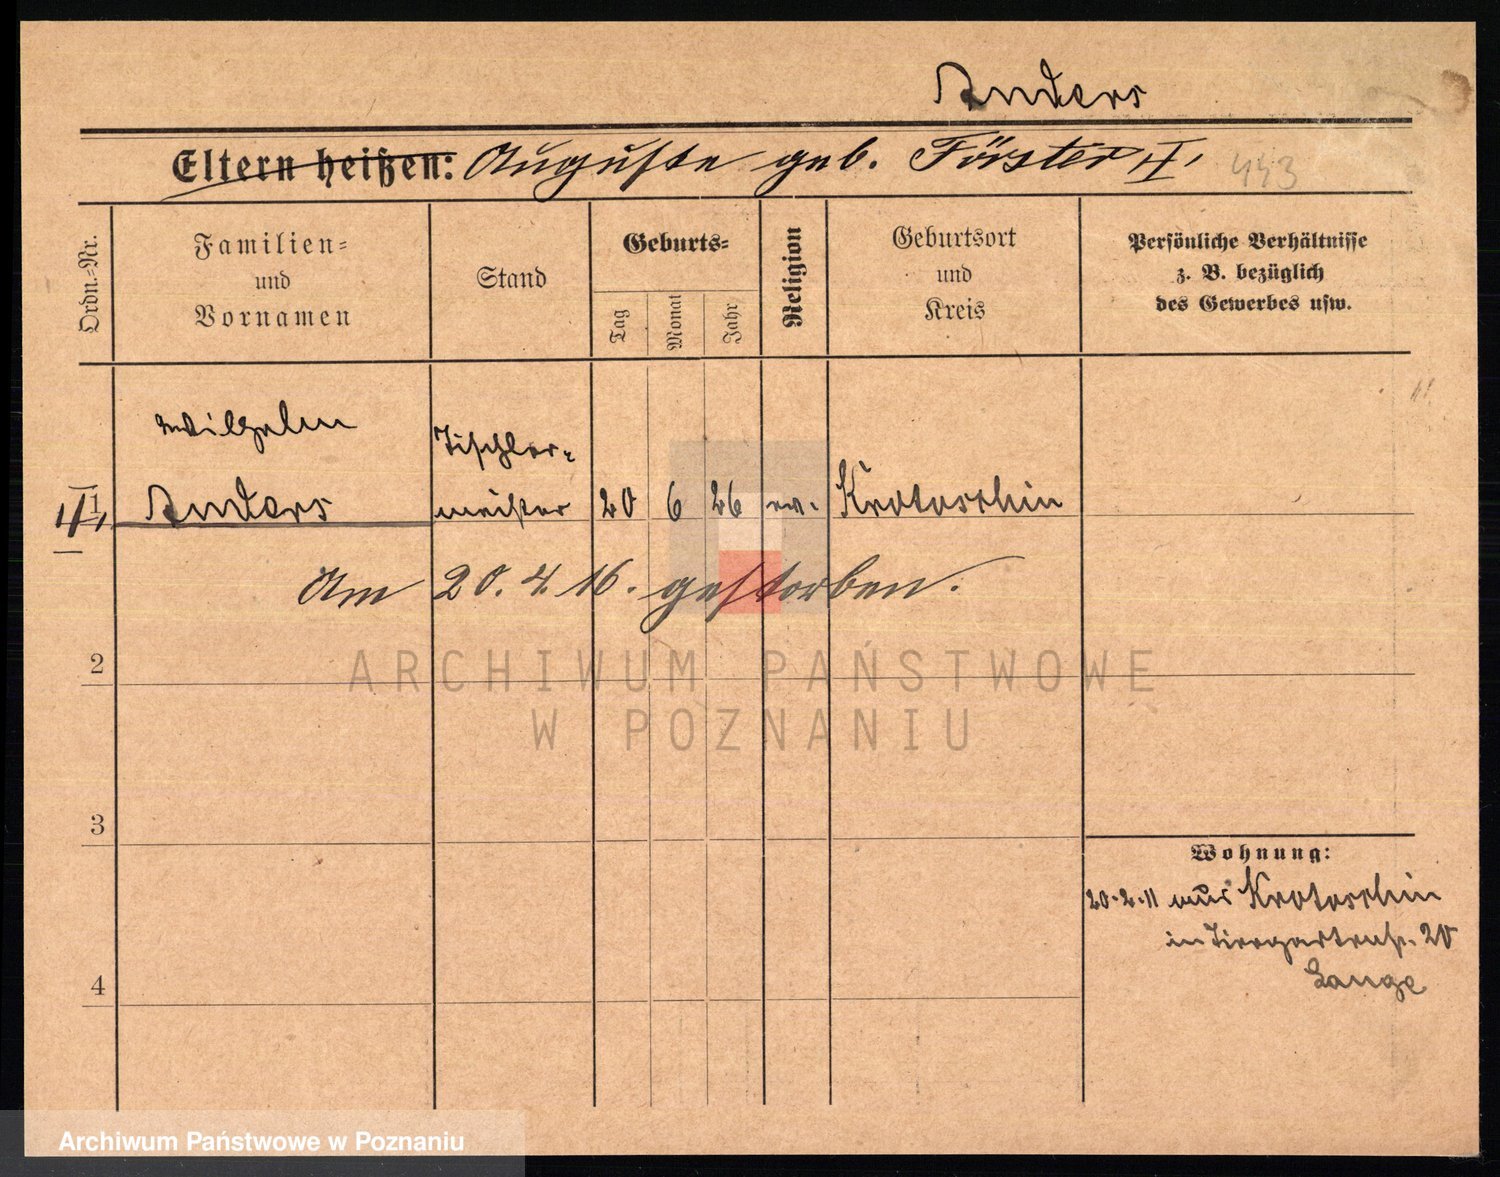 Anders
Eltern heißen: Auguste geb. Förster II,
443
Ordn.-Nr.
Familien-
und
Vornamen
Stand
Geburts-
Tag
Monat
Jahr
Religion
Geburtsort
und
Kreis
Persönliche Verhältnisse
z. B. bezüglich
des Gewerbes usw.
Wilhelm
Tischler-
1 Anders meister 20 6 26 ev. Krotoschin
II,
Am 20. 4. 16. gestorben.
2
ARCHIWUM PAŃSTWOWE
W POZNANIU
3
Wohnung:
20.2.11 aus Krotoschin
in 20
Lange
4
Archiwum Państwowe w Poznaniu